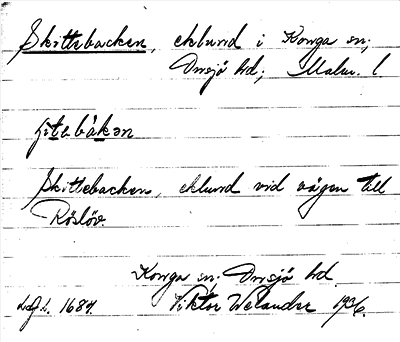 Skittebacken, eklund i Konga sn;
Onsjö hd; Malm. l.
Skittebacken, eklund vid vägen till
Röslöv.
Konga sn; Onsjö hd.
1684. Viktor Welander 1936.